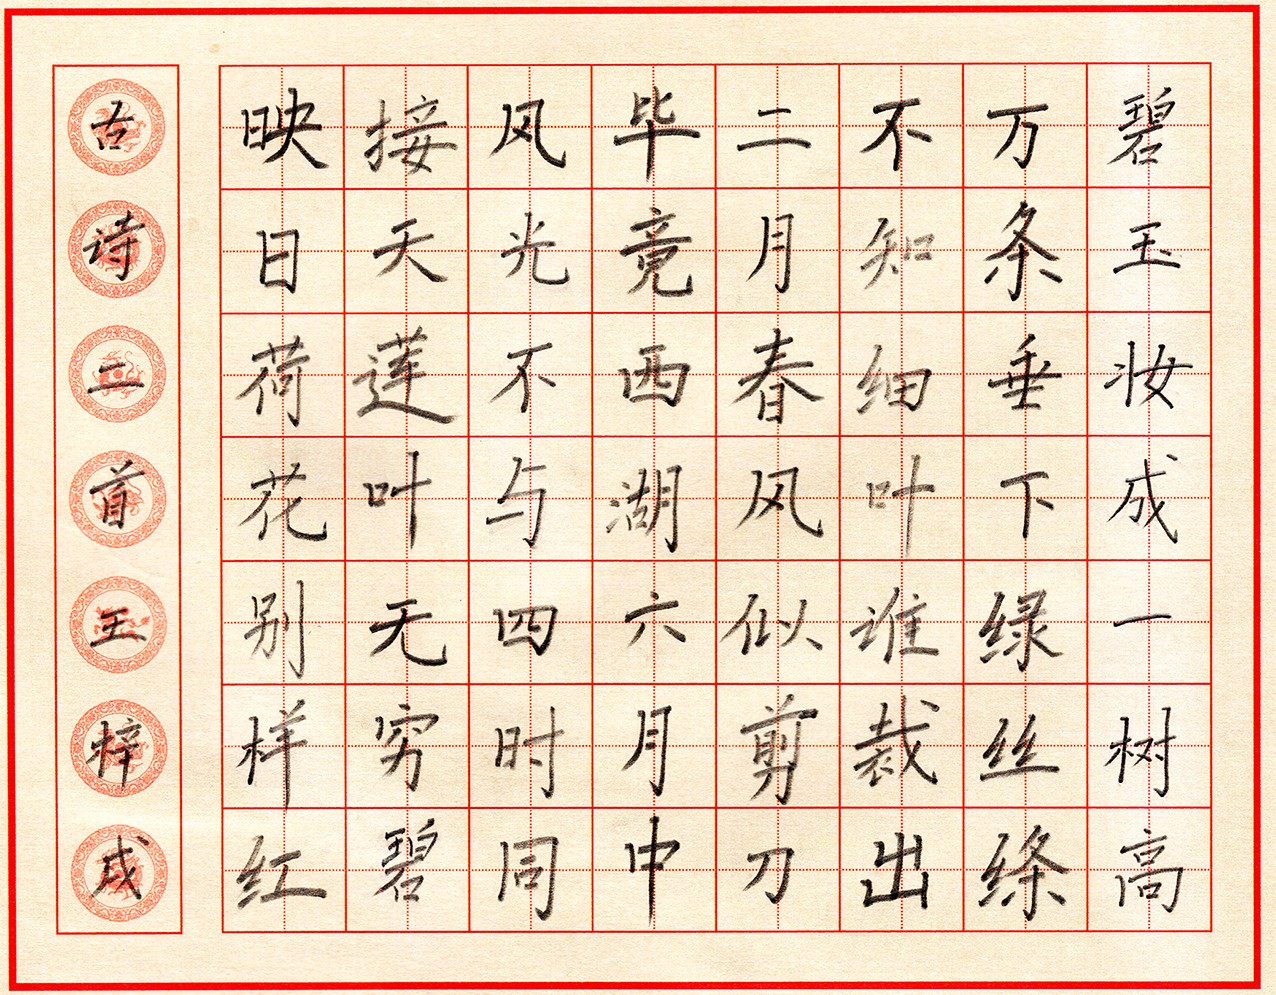 碧玉妆成一树高
万条垂下绿丝绦
不知细叶谁裁出
二月春风似剪刀
毕竟西湖六月中
风光不与四时同
接天莲叶无穷碧
映日荷花别样红
古诗二首王梓